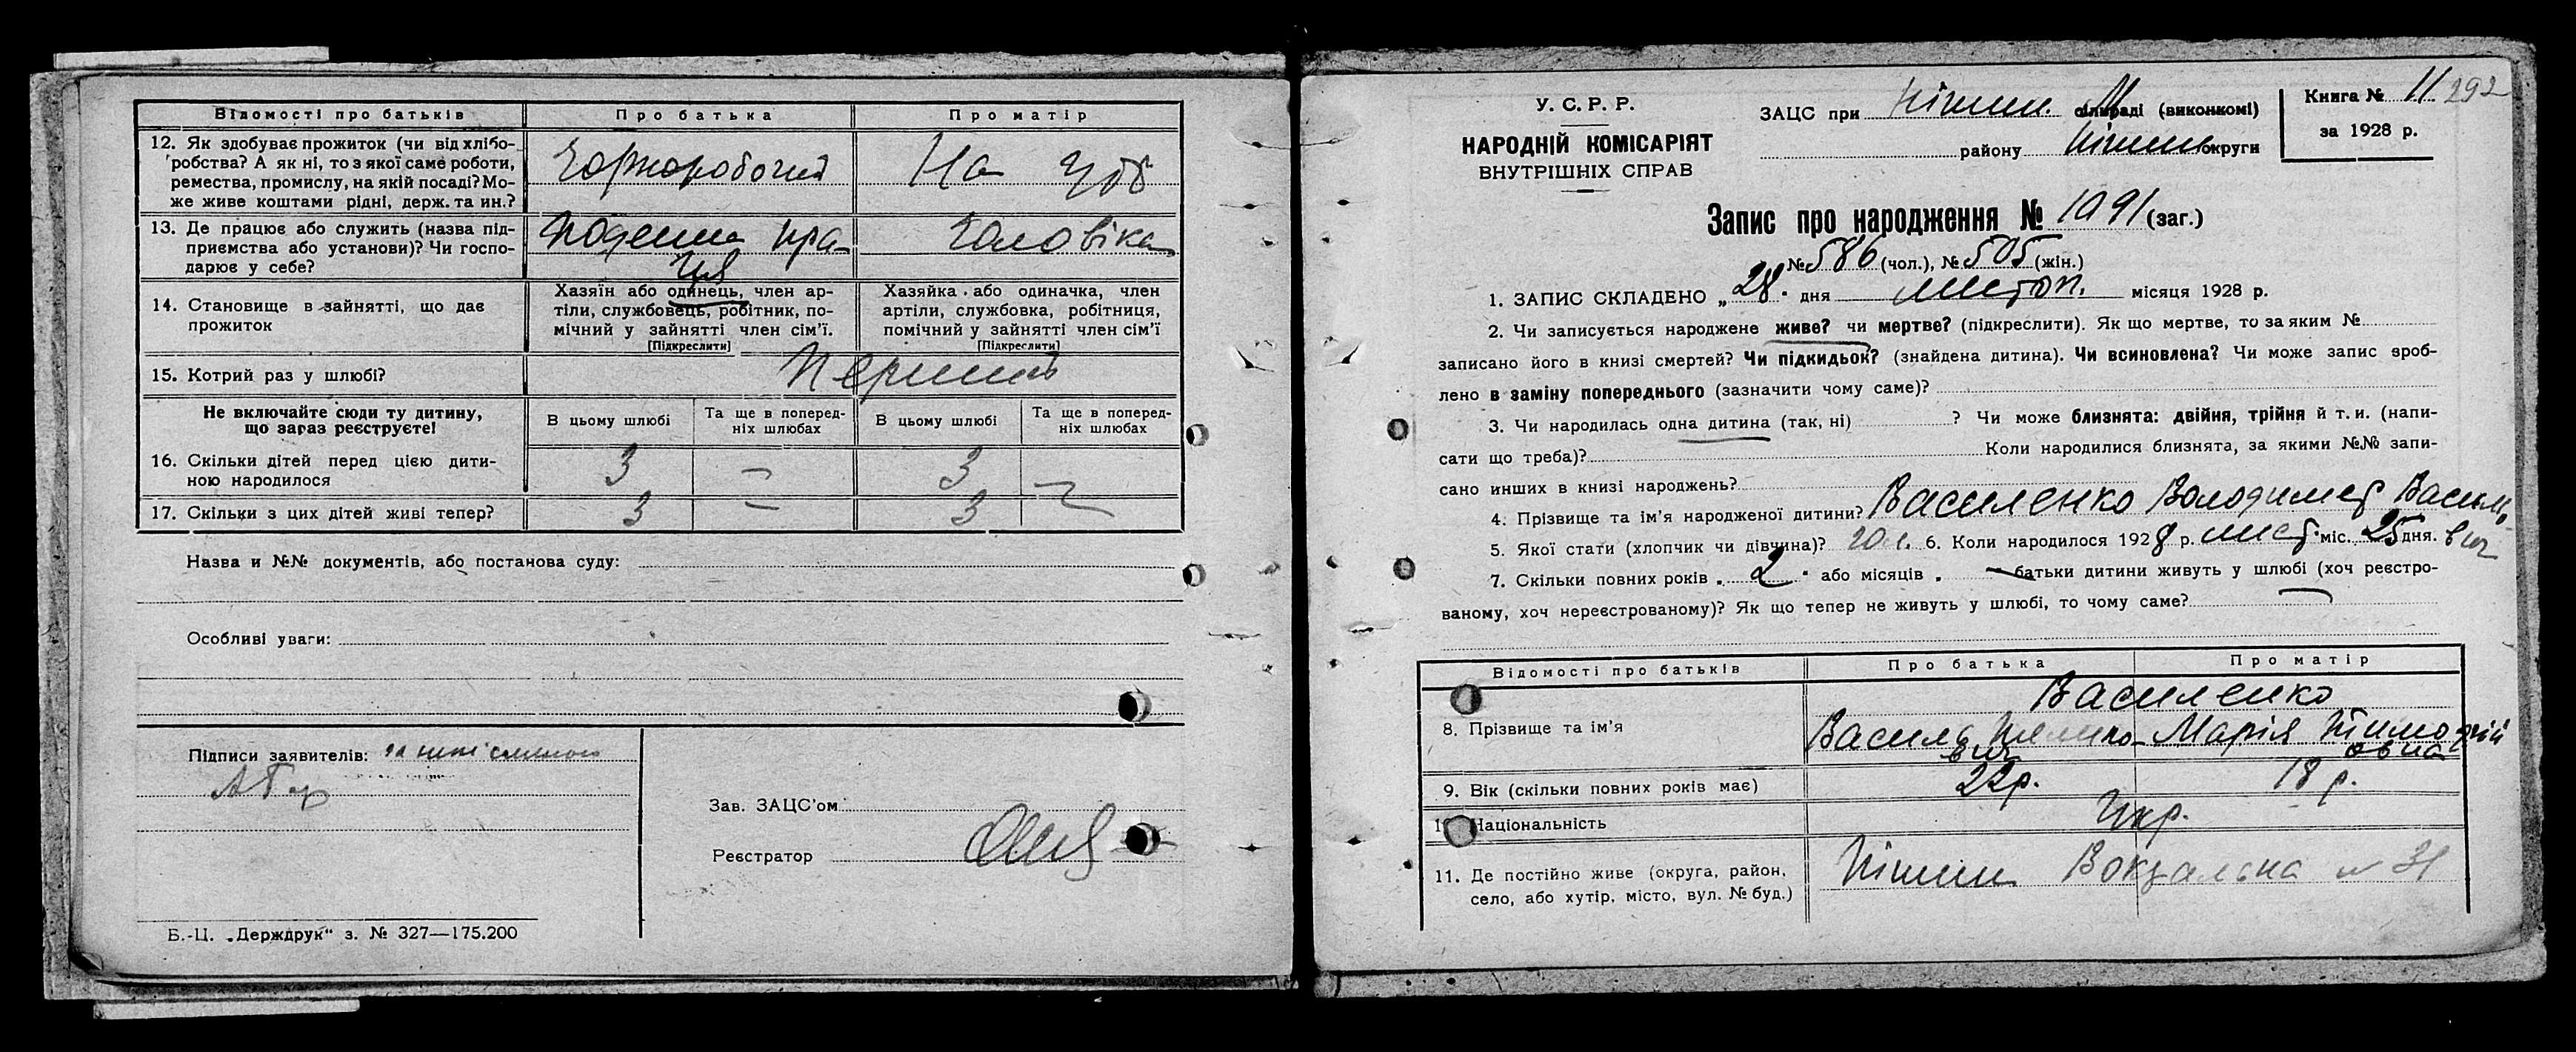 Відомості про батьків Про батька Про матір
12. Як здобуває прожиток (чи від хлібо-
робства? А як ні, то з якої саме роботи,
ремества, промислу, на якій посаді? Мо-
же живе коштами рідні, держ. та ин.?
Чорноробочий На утб
13. Де працює або служить (назва під-
приємства або установи)? Чи госпо-
дарює у себе?
Поденна пра-
ця
чоловіка
14. Становище в зайнятті, що дає
прожиток
Хазяїн або одинець, член ар-
тіли, службовець, робітник, по-
мічний у зайнятті член сім'ї.
[Підкреслити]
Хазяйка або одиначка, член
артіли, службовка, робітниця,
помічний у зайнятті член сім'ї
[Підкреслити]
15. Котрий раз у шлюбі? Перший
Не включайте сюди ту дитину,
що зараз реєструєте!
В цьому шлюбі
Та ще в поперед-
ніх шлюбах
В цьому шлюбі
Та ще в поперед-
ніх шлюбах
16. Скільки дітей перед цією дити-
ною народилося
3 — 3 —
17. Скільки з цих дітей живі тепер? 3 — 3 —
Назва и №№ документів, або постанова суду:
Особливі уваги:
Підписи заявителів:
Зав. ЗАЦС'ом
Реєстратор
Б.-Ц. „Держдрук“ з. № 327—175.200
У. С. Р. Р.
НАРОДНІЙ КОМІСАРІЯТ
ВНУТРІШНІХ СПРАВ
ЗАЦС при Ніжин. М сільраді (виконкомі)
району Ніжин округи
Книга № 11 292
за 1928 р.
Запис про народження № 1091 (заг.)
№ 586 (чол.), № 505 (жін.)
1. ЗАПИС СКЛАДЕНО „28" дня листоп. місяця 1928 р.
2. Чи записується народжене живе? чи мертве? (підкреслити). Як що мертве, то за яким №
записано його в книзі смертей? Чи підкидьок? (знайдена дитина). Чи всиновлена? Чи може запис зроб-
лено в заміну попереднього (зазначити чому саме)?
3. Чи народилась одна дитина (так, ні) ? Чи може близнята: двійня, трійня й т. и. (напи-
сати що треба)? Коли народилися близнята, за якими №№ запи-
сано инших в книзі народжень?
4. Прізвище та ім'я народженої дитини? Василенко Володимер Василь
5. Якої стати (хлопчик чи дівчина)? чол. 6. Коли народилося 1928 р. лист. міс. 25 дня. вич
7. Скільки повних років „ 2 " або місяців „ — батьки дитини живуть у шлюбі (хоч реєстро-
ваному, хоч нереєстрованому)? Як що тепер не живуть у шлюбі, то чому саме?
Відомості про батьків Про батька Про матір
8. Прізвище та ім'я
Василенко
Василь
вич
Марія Тимофій
овна
9. Вік (скільки повних років має) 22 р. 18 р.
10. Національність Укр.
11. Де постійно живе (округа, район,
село, або хутір, місто, вул. № буд.)
Ніжин Вокзальна № 31